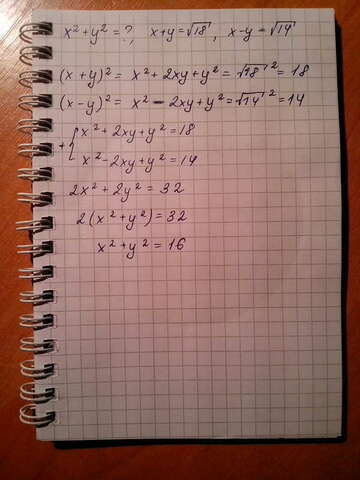 x² + y² = ?, x + y = √18, x - y = √14
(x + y)² = x² + 2xy + y² = √18² = 18
(x - y)² = x² - 2xy + y² = √14² = 14
+ { x² + 2xy + y² = 18
x² - 2xy + y² = 14
2x² + 2y² = 32
2(x² + y²) = 32
x² + y² = 16